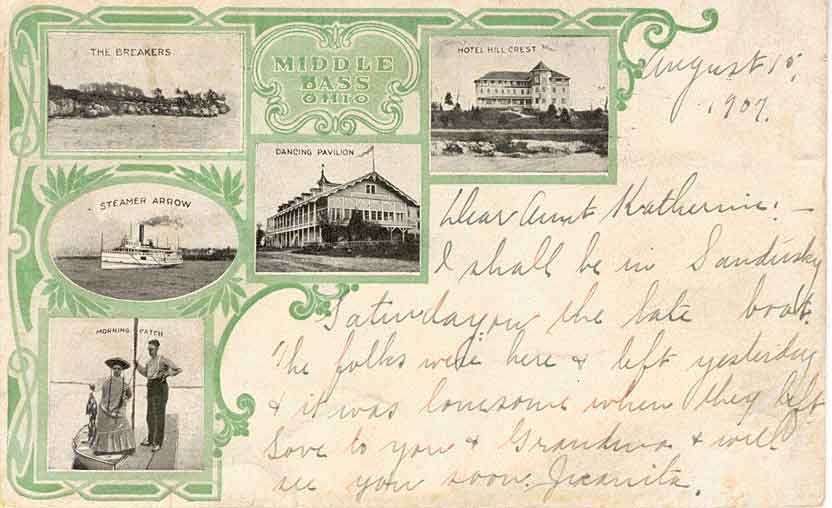 THE BREAKERS
MIDDLE
BASS
OHIO
HOTEL HILL CREST
DANCING PAVILION
STEAMER ARROW
MORNING CATCH
August 15,
1907.
Dear Aunt Katherine: —
I shall be in Sandusky
Saturday on the late boat.
The folks were here & left yesterday
& it was lonesome when they left
Love to you & Grandma & will
see you soon. Juanita.